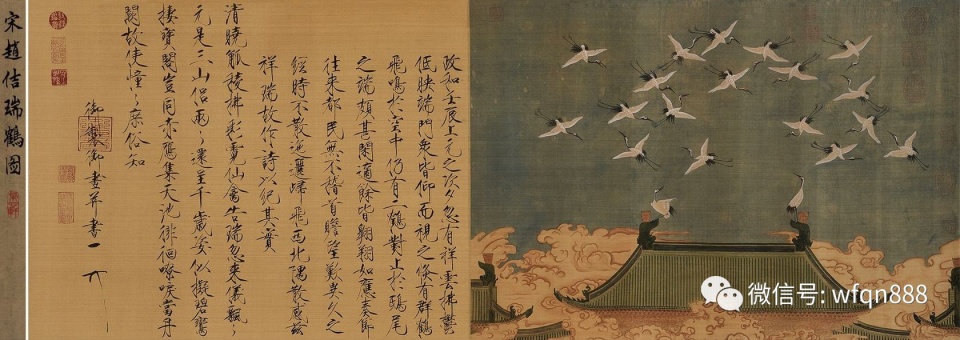 政和壬辰上元之次夕忽有祥雲拂鬱
低映端門衆皆仰而視之倏有群鶴
飛鳴於空中仍有二鶴對止於鴟尾
之端頗甚閑適餘皆翱翔如應奏節
往来都民無不稽首瞻望歎異久之
經時不散迤邐歸飛西北隅散感茲
祥瑞故作詩以紀其實
清曉觚稜拂彩霓仙禽告瑞忽来儀飄々
元是三山侶兩々還呈千歲姿似擬碧鸞
棲寶閣豈同赤鴈集天池徘徊嘹唳當丹
闕故使憧々庶俗知
御製御畫并書
宋趙佶瑞鶴圖
微信号: wfqn888